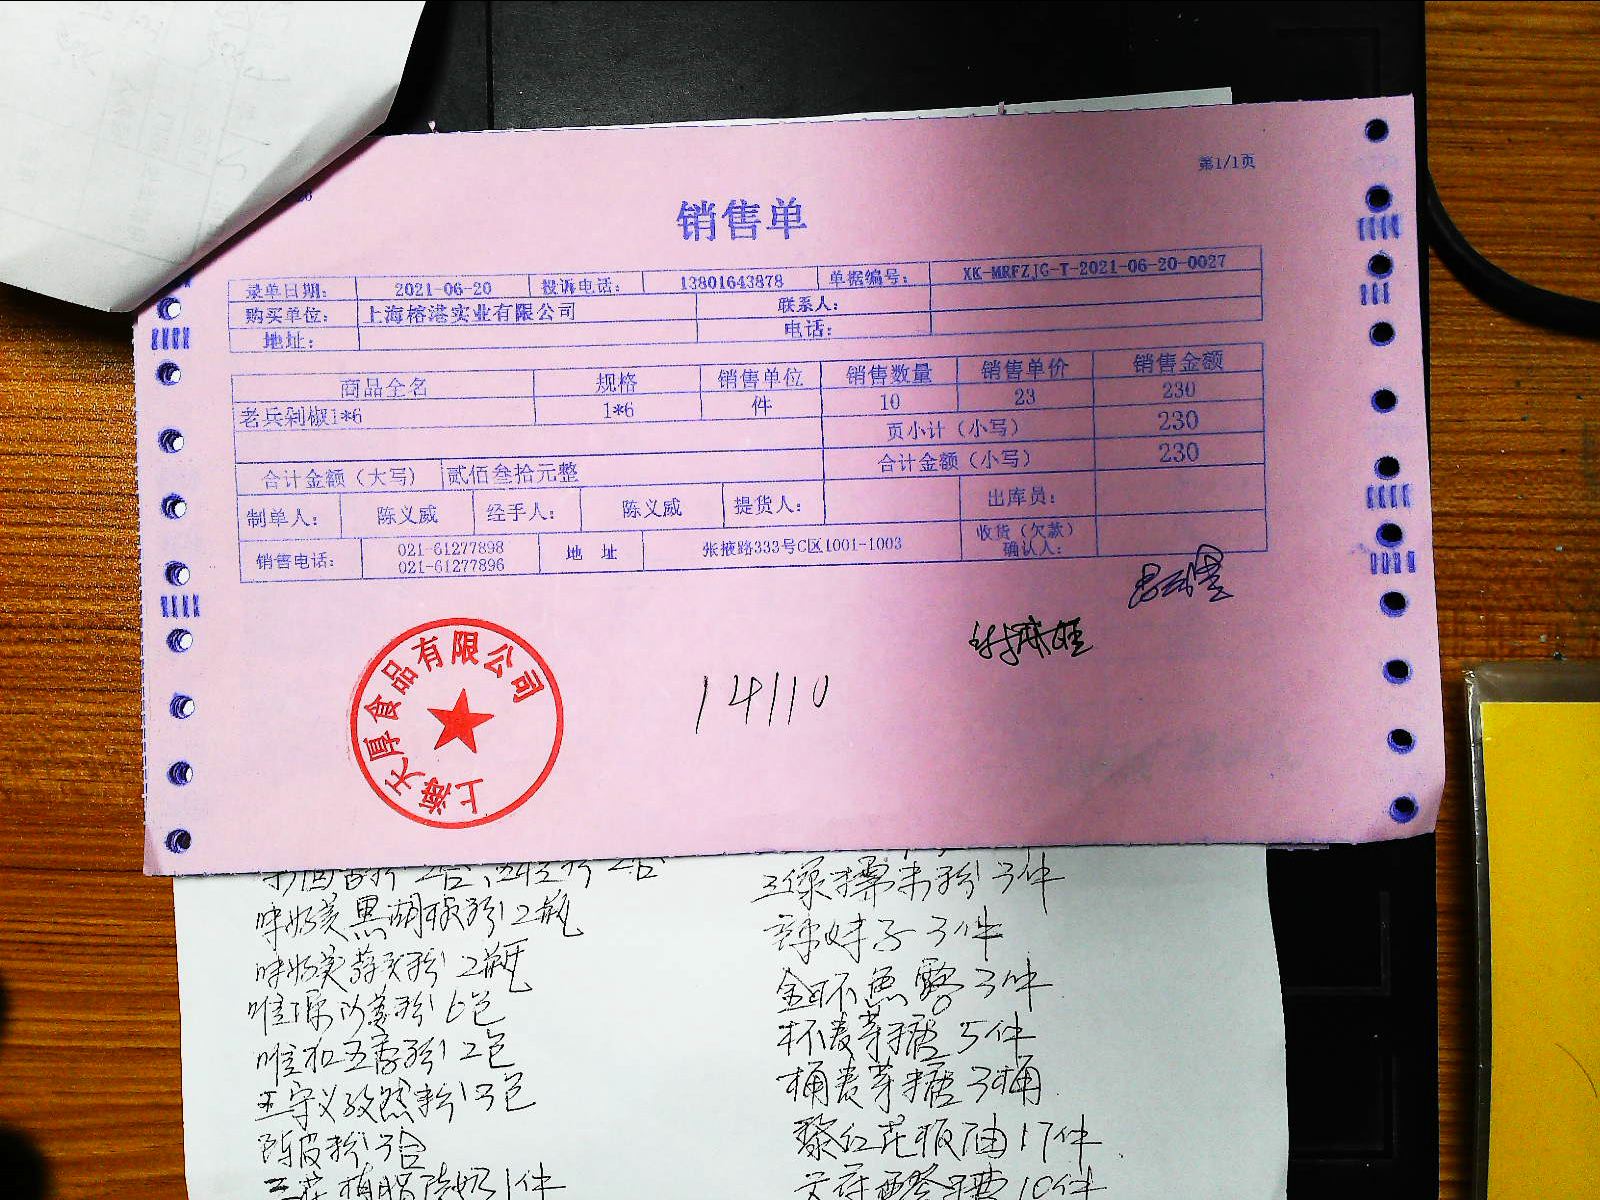 第1/1页
销售单
录单日期: 2021-06-20 投诉电话: 13801643878 单据编号: XK-MRFZJG-T-2021-06-20-0027
购买单位: 上海榕港实业有限公司 联系人:
地址: 电话:
商品全名 规格 销售单位 销售数量 销售单价 销售金额
老兵剁椒1*6 1*6 件 10 23 230
页小计（小写） 230
合计金额（大写） 贰佰叁拾元整 合计金额（小写） 230
制单人: 陈义威 经手人: 陈义威 提货人: 出库员:
销售电话: 021-61277898 021-61277896 地 址 张掖路333号C区1001-1003 收货（欠款）确认人:
上海天厚食品有限公司
14110
味好美黑胡椒粉2瓶
味好美蒜头粉2瓶
6包
五香粉2包
王守义孜然粉3包
陈皮粉3合
1件
3件
辣妹子3件
鱼露3件
杯麦芽糖5件
桶麦芽糖3桶
黎红花椒油17件
10件